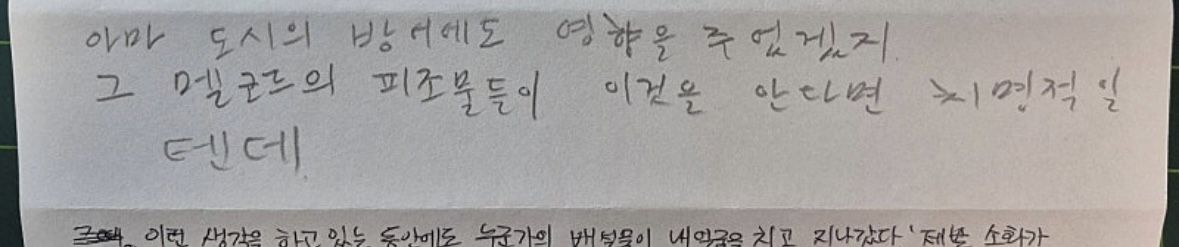 아마 도시의 방어에도 영향을 주었겠지.
그 멜균드의 피조물들이 이것을 안다면 치명적일
텐데.
이런 생각을 하고 있는 동안에도 누군가의 배설물이 내 얼굴을 치고 지나갔다 '제발 소화가